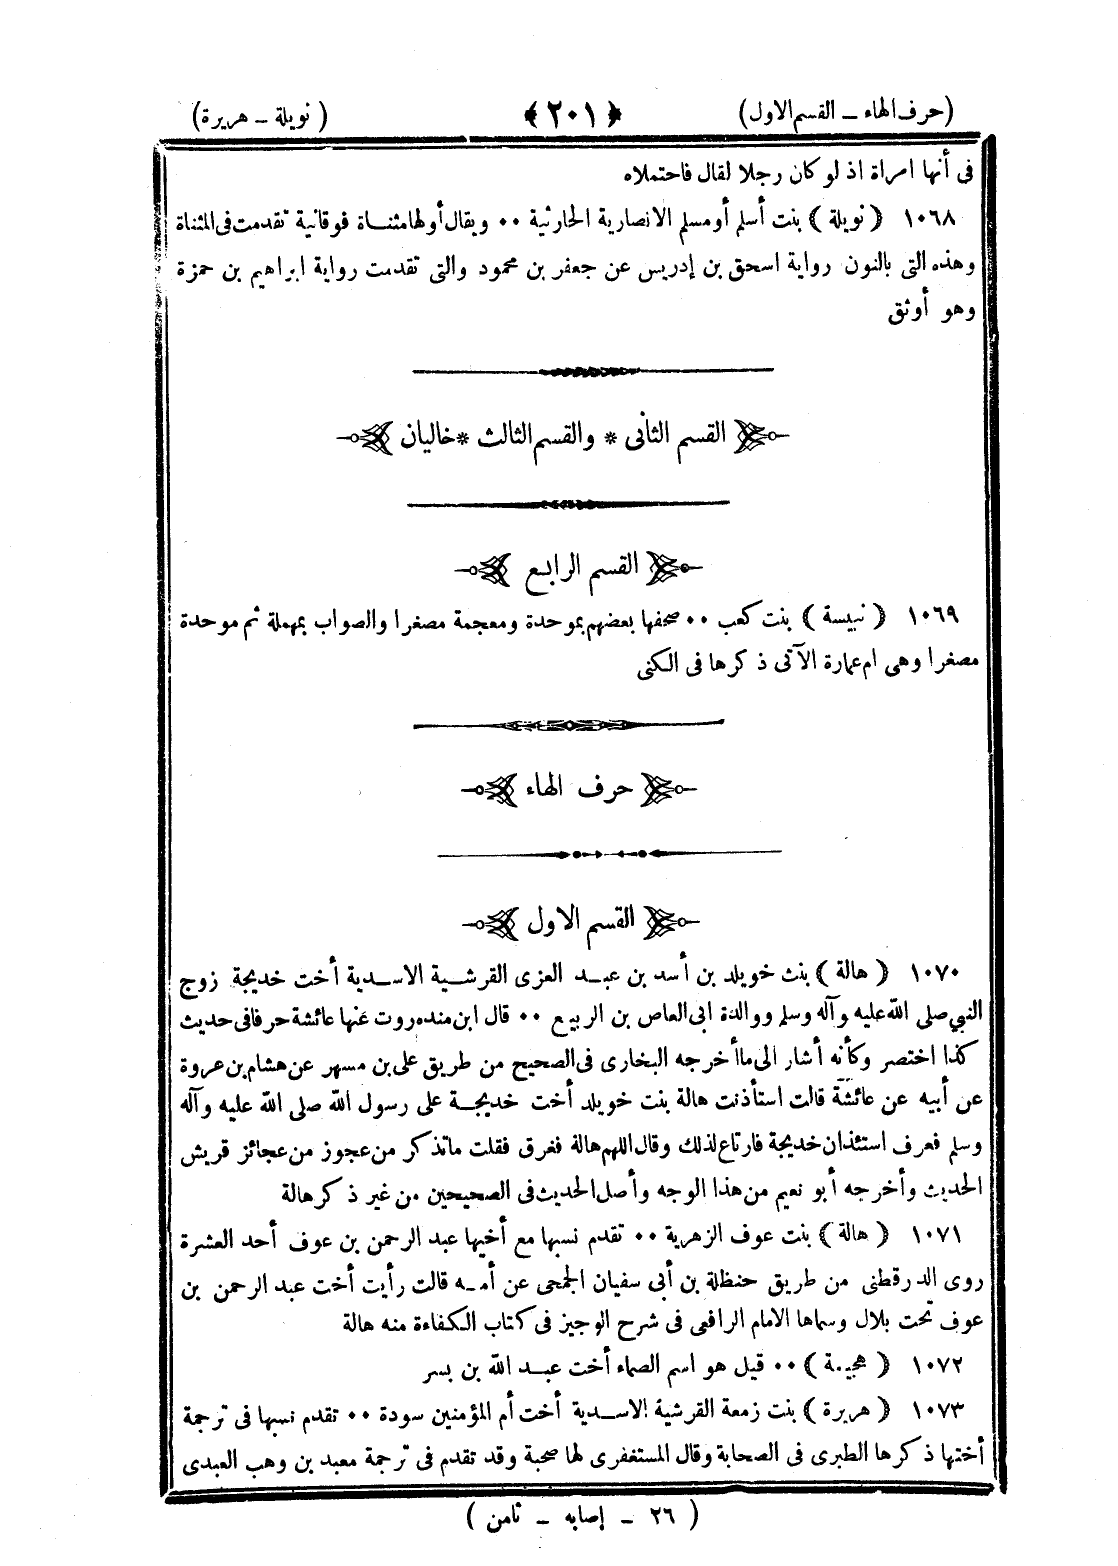 (حرف الهاء ــ القسم الاول) ﴿٢٠١﴾ (نويلة ــ هريرة)
فى أنها امراة اذ لو كان رجلا لقال فاحتملاه
١٠٦٨ (نويلة) بنت أسلم أو مسلم الانصارية الحارثية ٠٠ ويقال أولها مثناة فوقانية تقدمت فى المثناة
وهذه التى بالنون رواية اسحق بن إدريس عن جعفر بن محمود والتى تقدمت رواية ابراهيم بن حمزة
وهو أوثق
القسم الثانى * والقسم الثالث * خاليان
القسم الرابع
١٠٦٩ (نبيسة) بنت كعب ٠٠ صحفها بعضهم بموحدة ومعجمة مصغرا والصواب بمهملة ثم موحدة
مصغرا وهى ام عمارة الآتى ذكرها فى الكنى
حرف الهاء
القسم الاول
١٠٧٠ (هالة) بنت خويلد بن أسد بن عبد العزى القرشية الاسدية أخت خديجة زوج
النبي صلى الله عليه وآله وسلم ووالدة ابى العاص بن الربيع ٠٠ قال ابن منده روت عنها عائشة حرفا فى حديث
كذا اختصر وكأنه أشار الى ما أخرجه البخارى فى الصحيح من طريق على بن مسهر عن هشام بن عروة
عن أبيه عن عائشة قالت استأذنت هالة بنت خويلد أخت خديجة على رسول الله صلى الله عليه وآله
وسلم فعرف استئذان خديجة فارتاع لذلك وقال اللهم هالة فغرق فقلت ماتذكر من عجوز من عجائز قريش
الحديث وأخرجه أبو نعيم من هذا الوجه وأصل الحديث فى الصحيحين من غير ذكر هالة
١٠٧١ (هالة) بنت عوف الزهرية ٠٠ تقدم نسبها مع أخيها عبد الرحمن بن عوف أحد العشرة
روى الدرقطنى من طريق حنظلة بن أبى سفيان الجمحى عن أمه قالت رأيت أخت عبد الرحمن بن
عوف تحت بلال وسماها الامام الرافعى فى شرح الوجيز فى كتاب الكفاءة منه هالة
١٠٧٢ (هجيمة) ٠٠ قيل هو اسم الصماء أخت عبد الله بن بسر
١٠٧٣ (هريرة) بنت زمعة القرشية الاسدية أخت أم المؤمنين سودة ٠٠ تقدم نسبها فى ترجمة
أختها ذكرها الطبرى فى الصحابة وقال المستغفرى لها صحبة وقد تقدم فى ترجمة معبد بن وهب العبدى
(٢٦ ــ إصابه ــ ثامن)